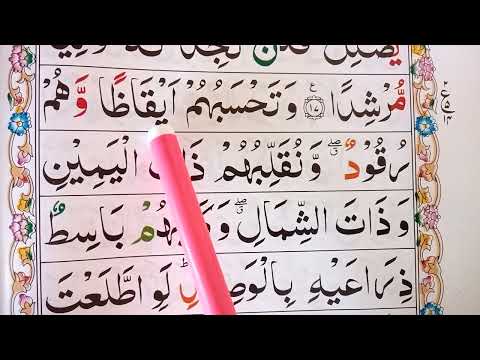 يُّضْلِلْ فَلَنْ تَجِدَ لَهٗ وَلِيًّا
مُّرْشِدًا ۝١٧ وَتَحْسَبُهُمْ اَيْقَاظًا وَّهُمْ
رُقُوْدٌ ۖق وَّنُقَلِّبُهُمْ ذَاتَ الْيَمِيْنِ
وَذَاتَ الشِّمَالِ ۖق بَاسِطٌ
ذِرَاعَيْهِ بِالْوَصِيْدِ ؕ لَوِ اطَّلَعْتَ